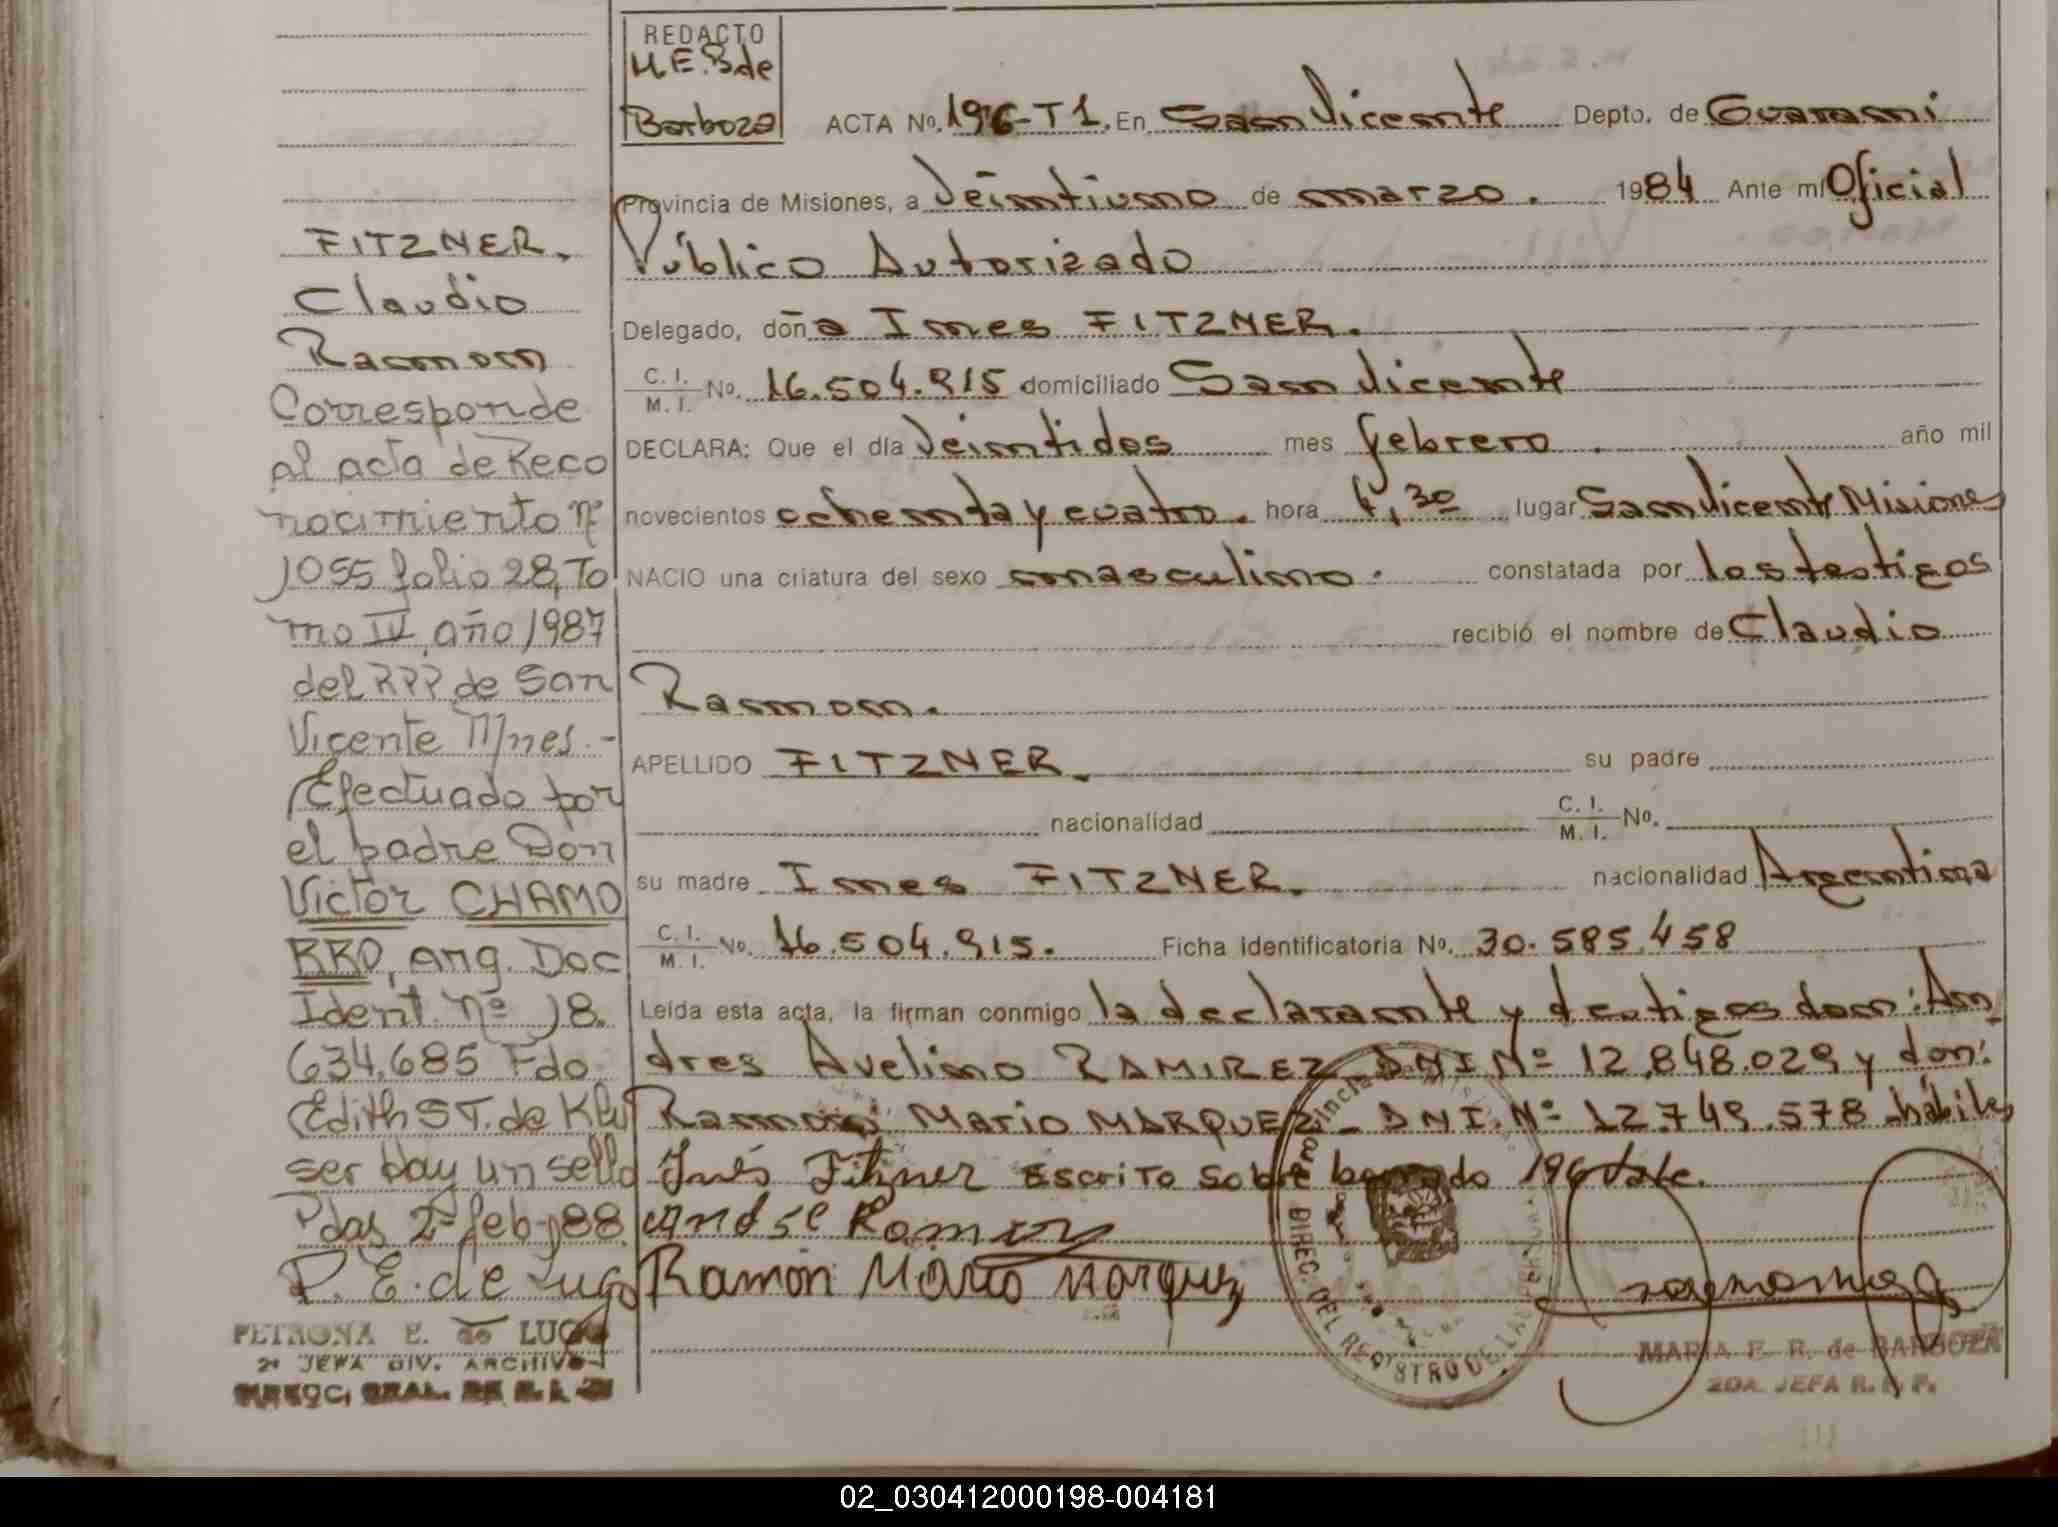 REDACTO
M.E.B de
Barboza
ACTA Nº. 196-T1. En San Vicente Depto. de Guarani
Provincia de Misiones, a Veintiuno de marzo. 1984 Ante mi Oficial
Público Autorizado
Delegado, doña Ines FITZNER.
C. I. / M. I. Nº. 16.504.915 domiciliado San Vicente
DECLARA: Que el día Veintidos mes febrero. año mil
novecientos ochenta y cuatro. hora 4,30 lugar San Vicente Misiones
NACIO una criatura del sexo masculino. constatada por los testigos
recibió el nombre de Claudio
Ramon.
APELLIDO FITZNER. su padre
nacionalidad C. I. / M. I. Nº.
su madre Ines FITZNER. nacionalidad Argentina
C. I. / M. I. Nº. 16.504.915. Ficha identificatoria Nº. 30.585.458
Leída esta acta, la firman conmigo la declarante y testigos don: An
dres Avelino RAMIREZ DNI. Nº 12.848.029 y don:
Ramon Mario MARQUEZ - DNI. Nº 12.749.578 hábiles
Inés Fitzner Escrito sobre borrado 196 Vale.
Ramon Mario Marquez
DIREC. DEL REGISTRO DE LAS PERSONAS
MARIA E. B. de BARBOZA
2DA. JEFA R. P. P.
FITZNER.
Claudio
Ramon
Corresponde
al acta de Reco
nocimiento nº
1055 folio 28, To
mo IV, año 1987
del RPP de San
Vicente Mnes.-
Efectuado por
el padre Don
Victor CHAMO
RRO, arg. Doc
Ident. nº 18.
634.685 Fdo.
Edith S T. de Klu
ser hay un sello
Pdas 2 feb-88.
P. E. de Lugo
PETRONA E. de LUGO
2ª JEFA DIV. ARCHIVO
DIREOC. GRAL. DE R. P.
02_030412000198-004181